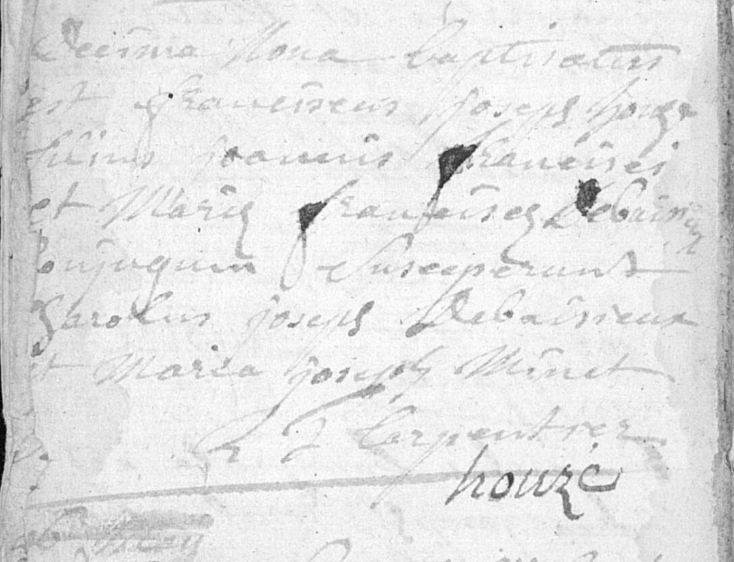 Decima Nona baptisatus
est franciscus joseph houze
filius Joannis francisci
et Mariæ franciscæ Debaisieux
Conjugum Susceperunt
Carolus joseph Debaisieux
et Maria joseph Minet
J Carpentrez
houzé